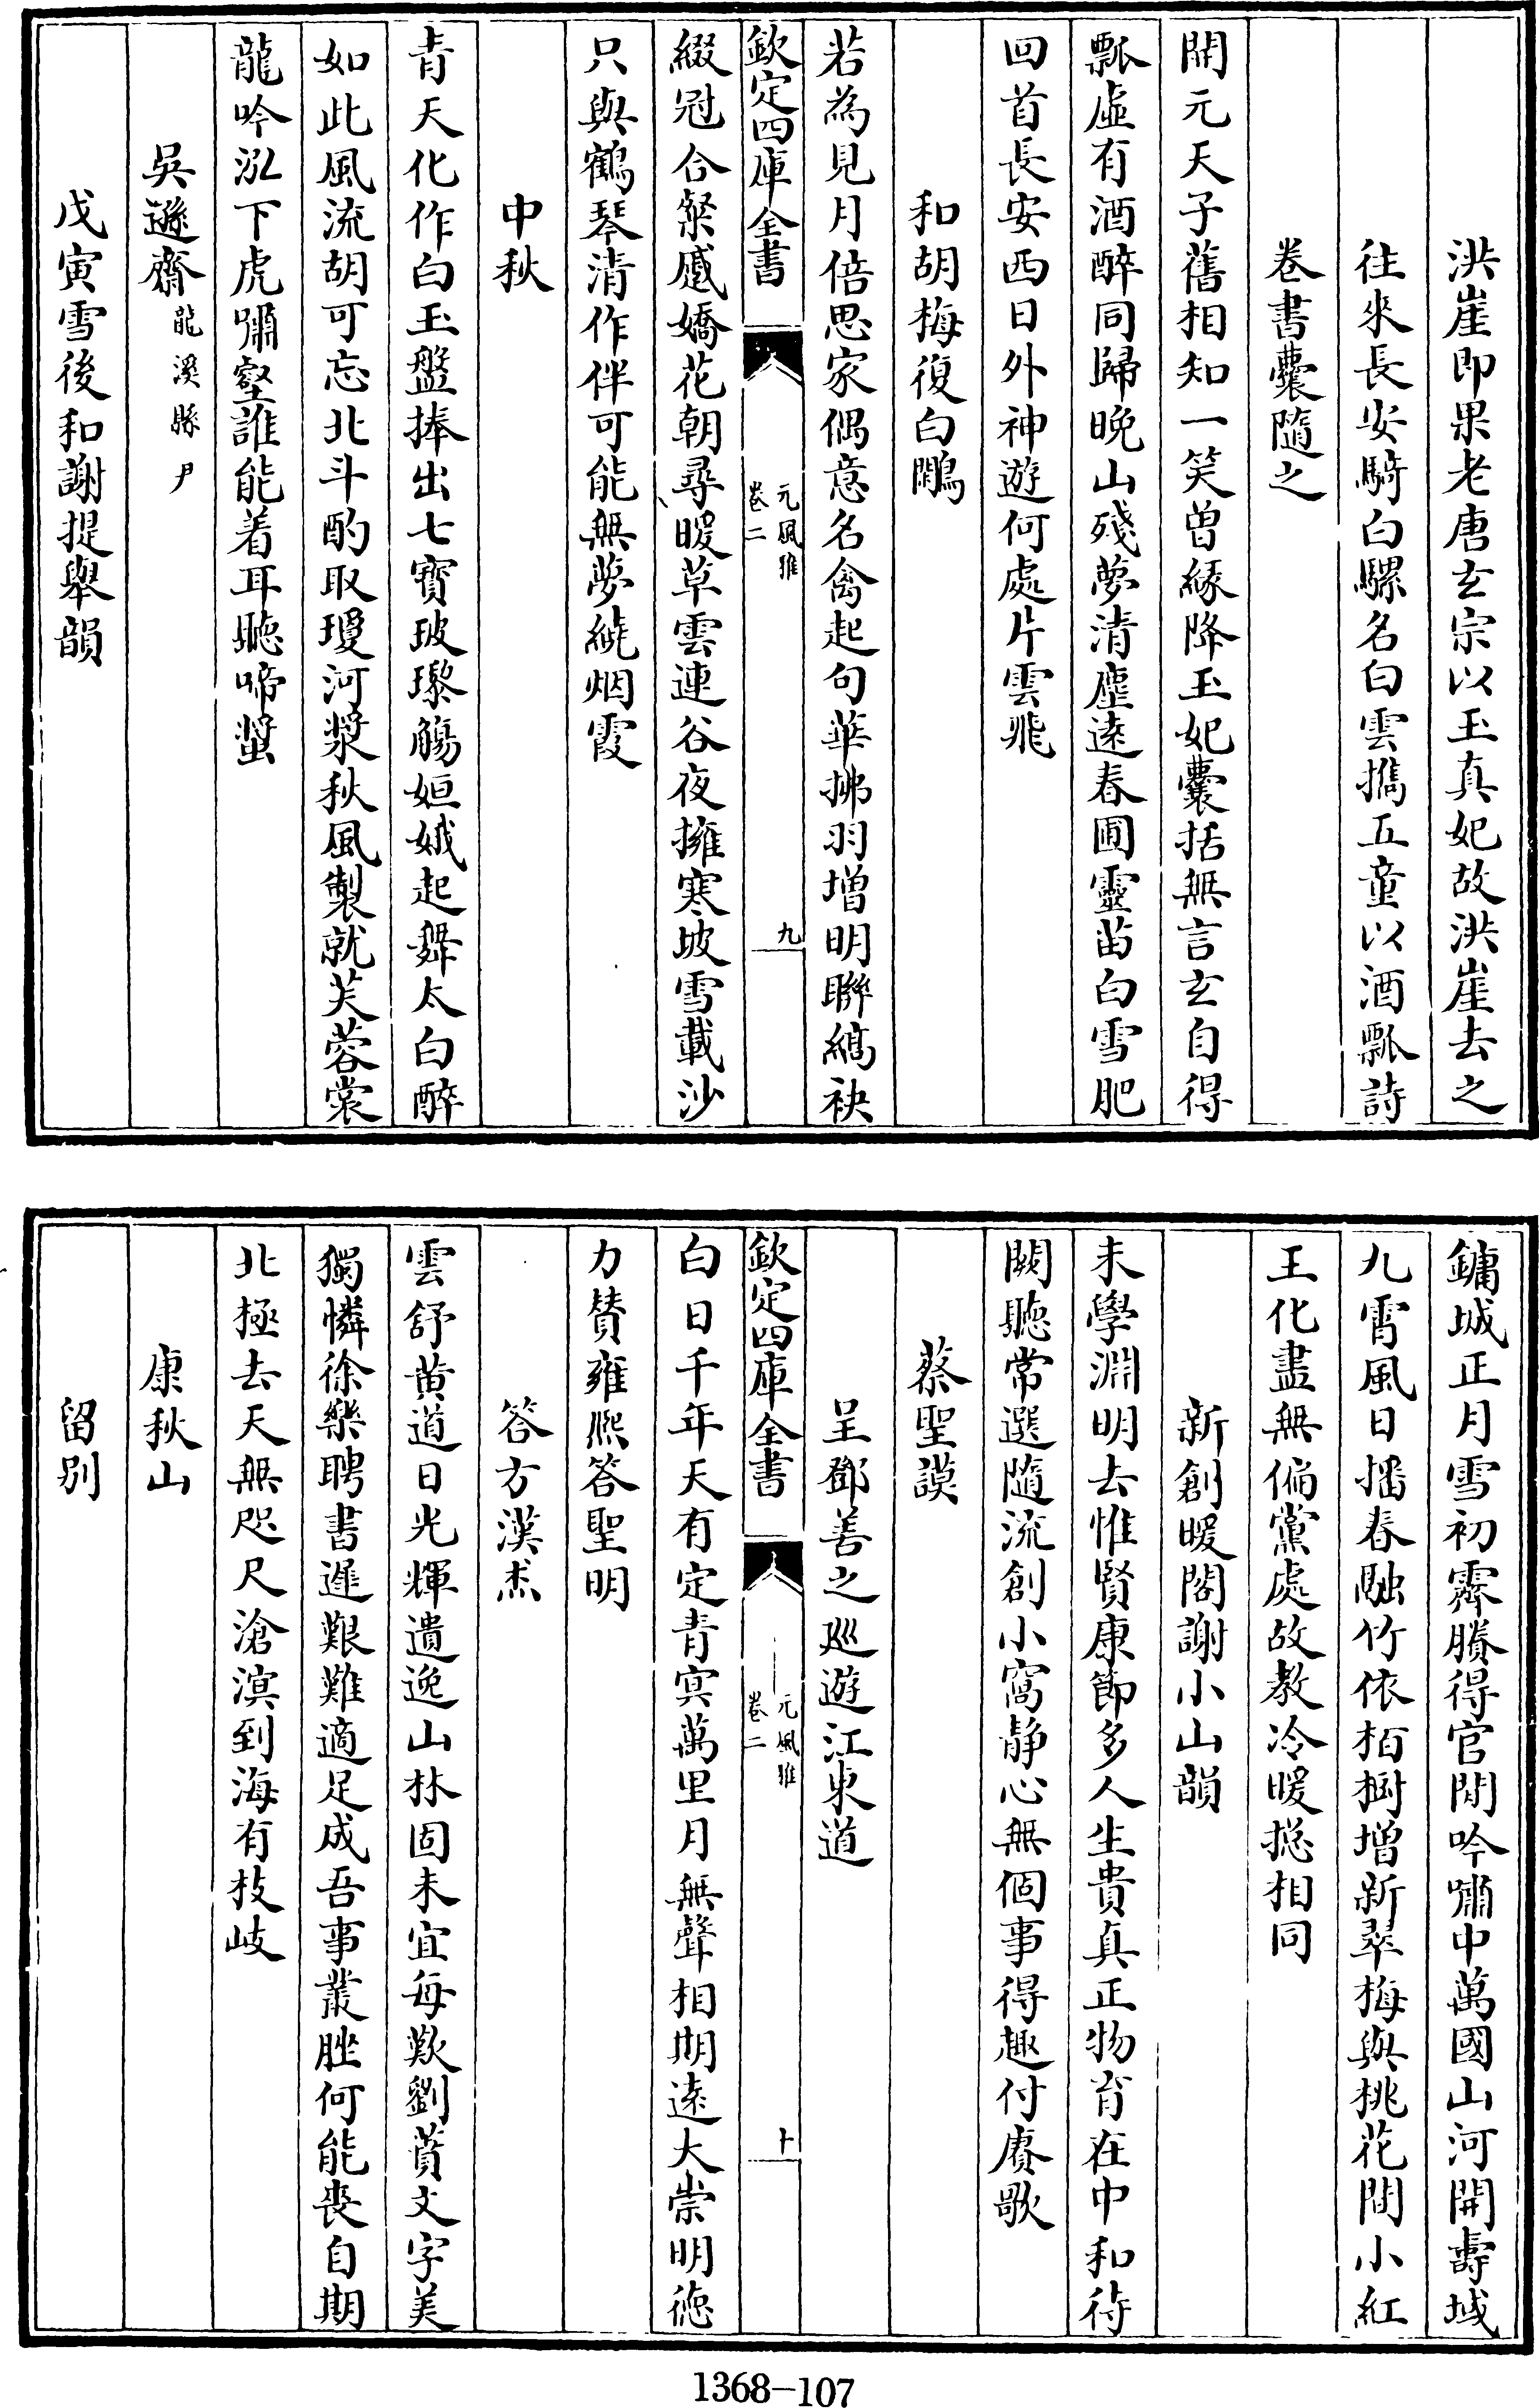 洪崖即果老唐玄宗以玉真妃故洪崖去之
往來長安騎白騾名白雲攜五童以酒瓢詩
卷書囊隨之
開元天子舊相知一笑曾緣降玉妃囊括無言玄自得
瓢虛有酒醉同歸晚山殘夢清塵遠春圃靈苗白雪肥
回首長安西日外神遊何處片雲飛
和胡梅復白鷴
若為見月倍思家偶意名禽起句華拂羽增明聯縞袂
欽定四庫全書
元風雅
卷二
九
綴冠合粲蹙嬌花朝尋暖草雲連谷夜擁寒坡雪載沙
只與鶴琴清作伴可能無夢繞烟霞
中秋
青天化作白玉盤捧出七寶玻瓈觴姮娥起舞太白醉
如此風流胡可忘北斗酌取瓊河漿秋風製就芙蓉裳
龍吟泓下虎嘯壑誰能着耳聽啼螿
吳遜齋龍溪縣尹
戊寅雪後和謝提舉韻
鏞城正月雪初霽賸得官閒吟嘯中萬國山河開壽域
九霄風日播春融竹依栢樹增新翠梅與桃花間小紅
王化盡無偏黨處故教冷暖揔相同
新創暖閣謝小山韻
未學淵明去惟賢康節多人生貴真正物育在中和待
闕聽常選隨流創小窩靜心無個事得趣付賡歌
蔡聖謨
呈鄧善之廵遊江東道
欽定四庫全書
元風雅
卷二
十
白日千年天有定青冥萬里月無聲相期遠大崇明德
力贊雍熈答聖明
答方漢杰
雲舒黃道日光輝遺逸山林固未宜每歎劉蕡文字美
獨憐徐樂聘書遲艱難適足成吾事叢脞何能喪自期
北極去天無咫尺滄溟到海有枝岐
康秋山
留別
1368-107